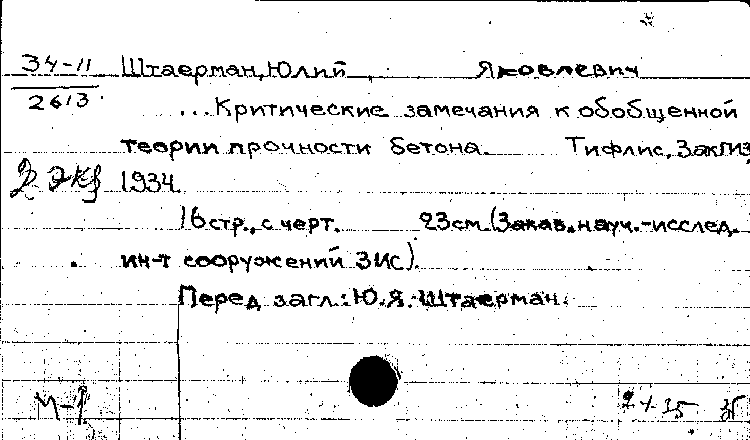 34-11
2613
Штаерман, Юлий Яковлевич
...Критические замечания к обобщенной
теории прочности бетона. Тифлис, Закгиз
2 экз 1934.
16 стр., с черт. 23 см. (Закав. науч.-исслед.
ин-т сооружений ЗИС).
Перед загл.: Ю.Я. Штаерман.